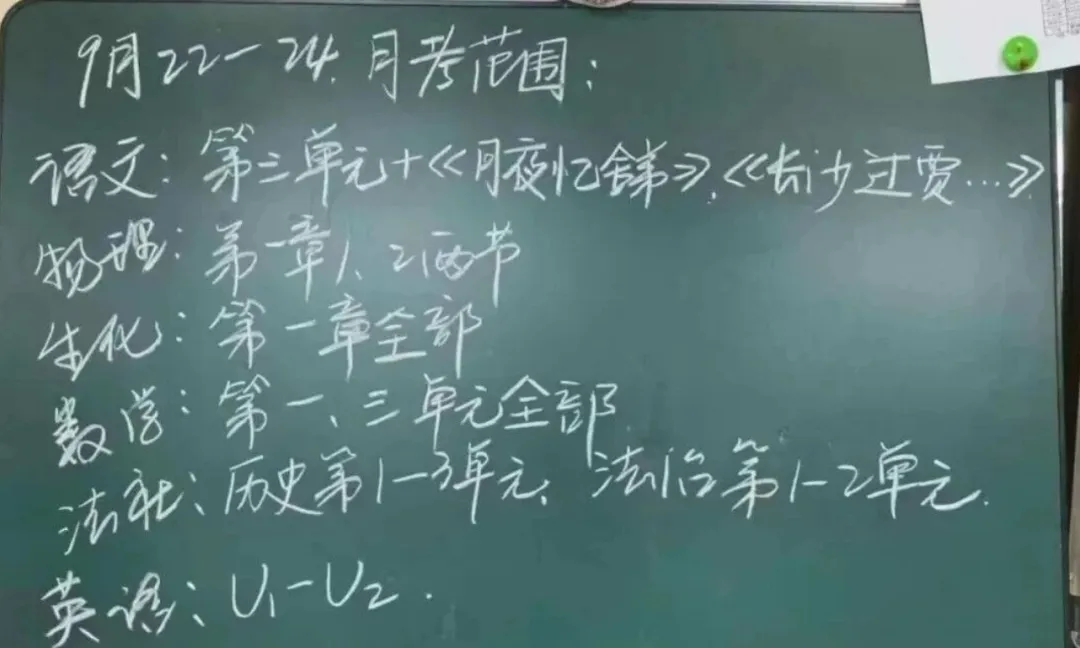 9月22-24.月考范围：
语文：第三单元+《月夜忆舍弟》、《长沙过贾…》
物理：第一章1、2两节
生化：第一章全部
数学：第一、三单元全部
法社：历史第1-3单元；法治第1-2单元.
英语：U1-U2.